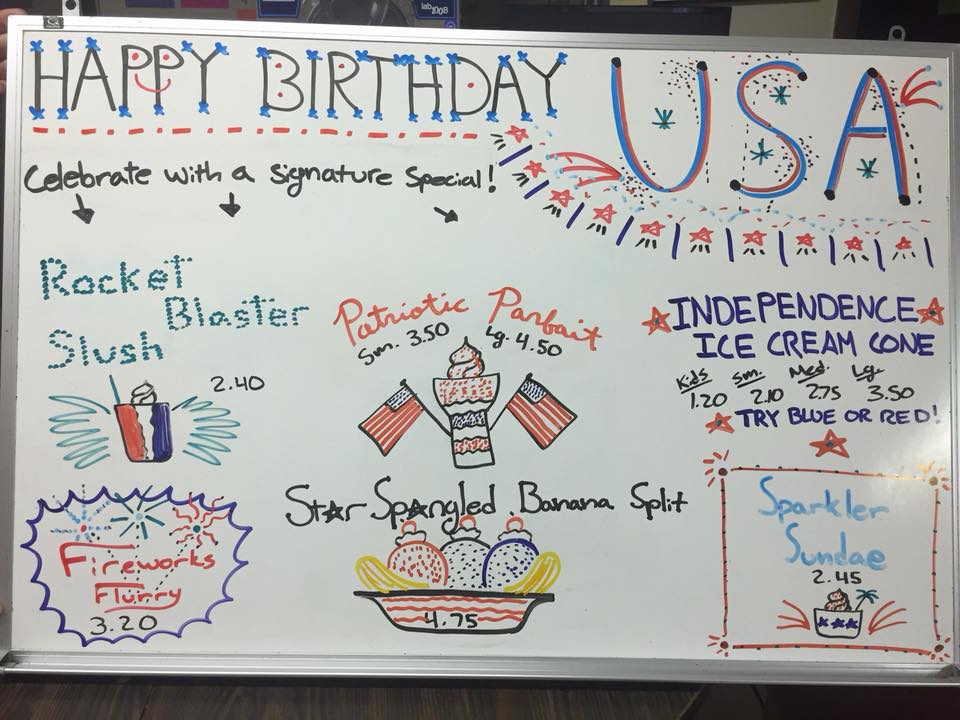 HAPPY BIRTHDAY USA
Celebrate with a Signature Special!
Rocket
Blaster
Slush
2.40
Patriotic Parfait
Sm. 3.50 Lg. 4.50
INDEPENDENCE
ICE CREAM CONE
Kids Sm. Med. Lg.
1.20 2.10 2.75 3.50
TRY BLUE OR RED!
Fireworks
Flurry
3.20
Star Spangled Banana Split
4.75
Sparkler
Sundae
2.45